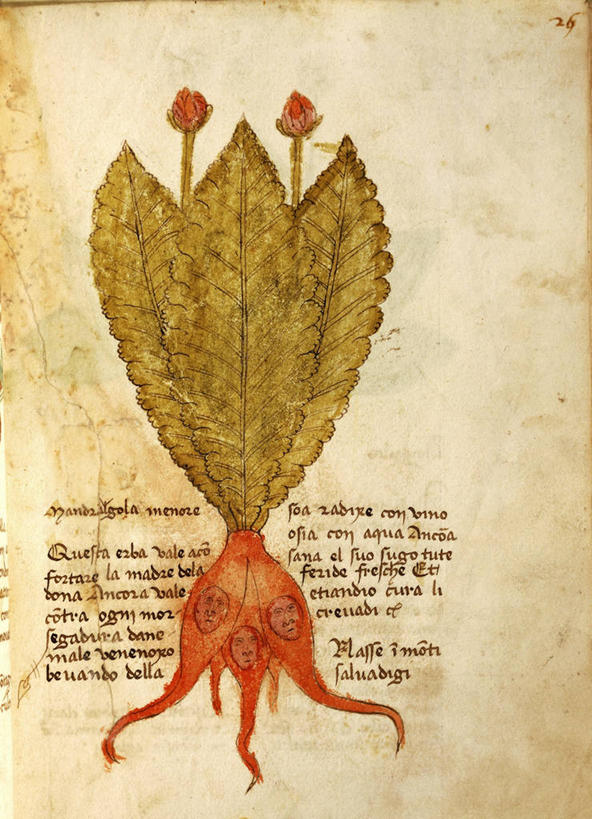 26
Mandragola menore
Questa erba vale acō
fortare la madre dela
dona Ancora vale
cōtra ogni mor-
segadura dane
male venenoxo
beuando della
soa radixe con vino
osia con aqua Ancōa
sana el suo sugo tute
feride fresche Et
etiandio cura li
creuadi
Nasse ī mōti
saluadigi